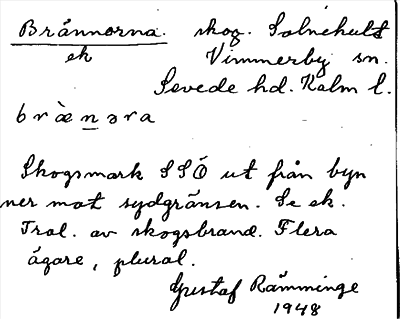 Brännorna. skog. Solnehult
ek Vimmerby sn.
Sevede hd. Kalm l.
b r æ̀ n ə r a
Skogsmark SSÖ ut från byn
ner mot sydgränsen. Se ek.
Trol. av skogsbrand. Flera
ägare, plural.
Gustaf Rämminge
1948